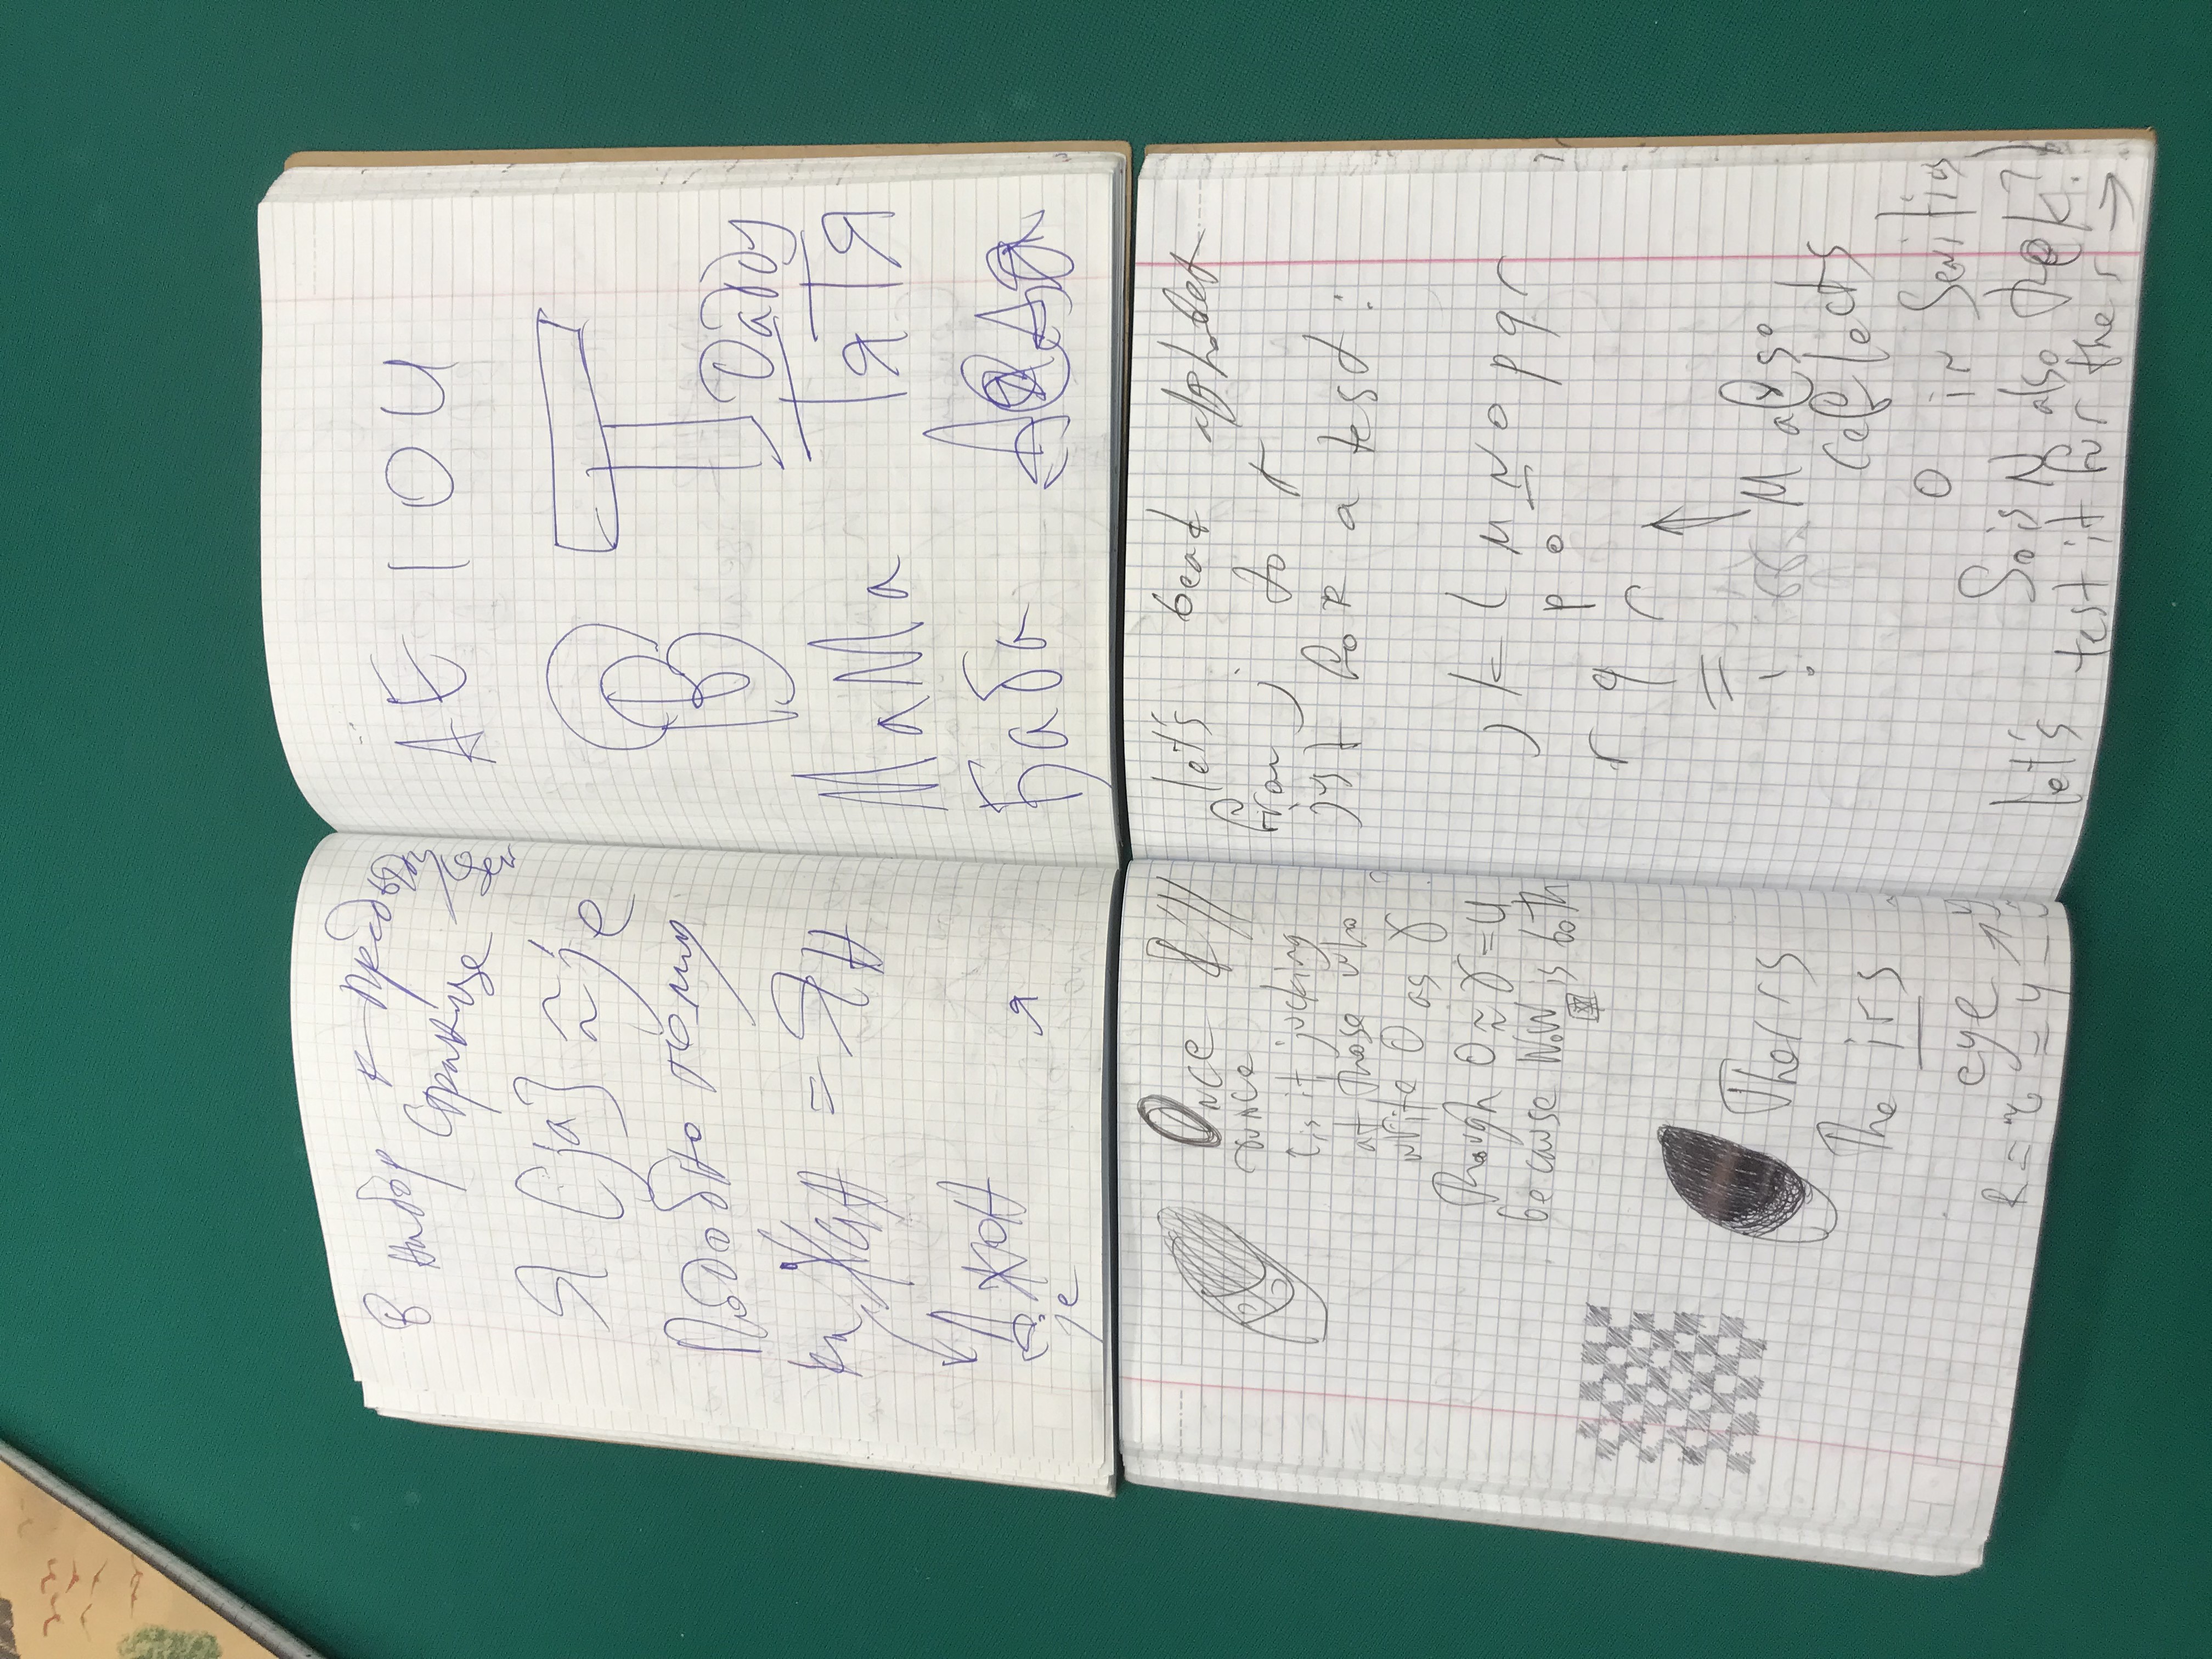 2020
В набор к предыдущей
странице
Я [ja] ≈ je
Подобно тому
как Жан = Ян
Джон
je
я
A E I O U
B T
Daddy
МаМа ТяТя
Баба
Once
ounce
is it jucking
at those who
write O as Ɣ ?
Though O ≈ Ɣ = U
because NoW is both
Therrs
The irs
eye
R = = Y
let's bead alphabet
from j to r
just for a test:
j k l M N o p q r
p o
r q r
=
!
M also
reflects
O in Semitics
So is N also the k?
let's test it furthe r →